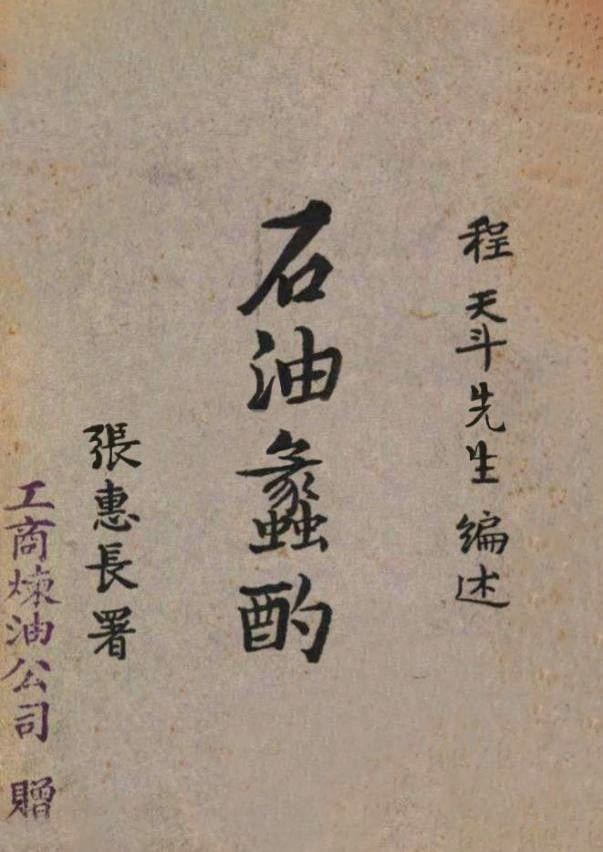 程天斗先生編述
石油蠡酌
張惠長署
工商煉油公司 贈